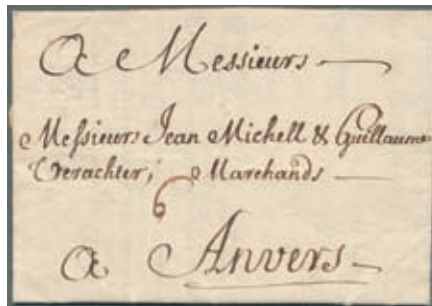 A Messieurs
Messieurs Jean Michell & Guillaume
Verachter, Marchands
6
a Anvers